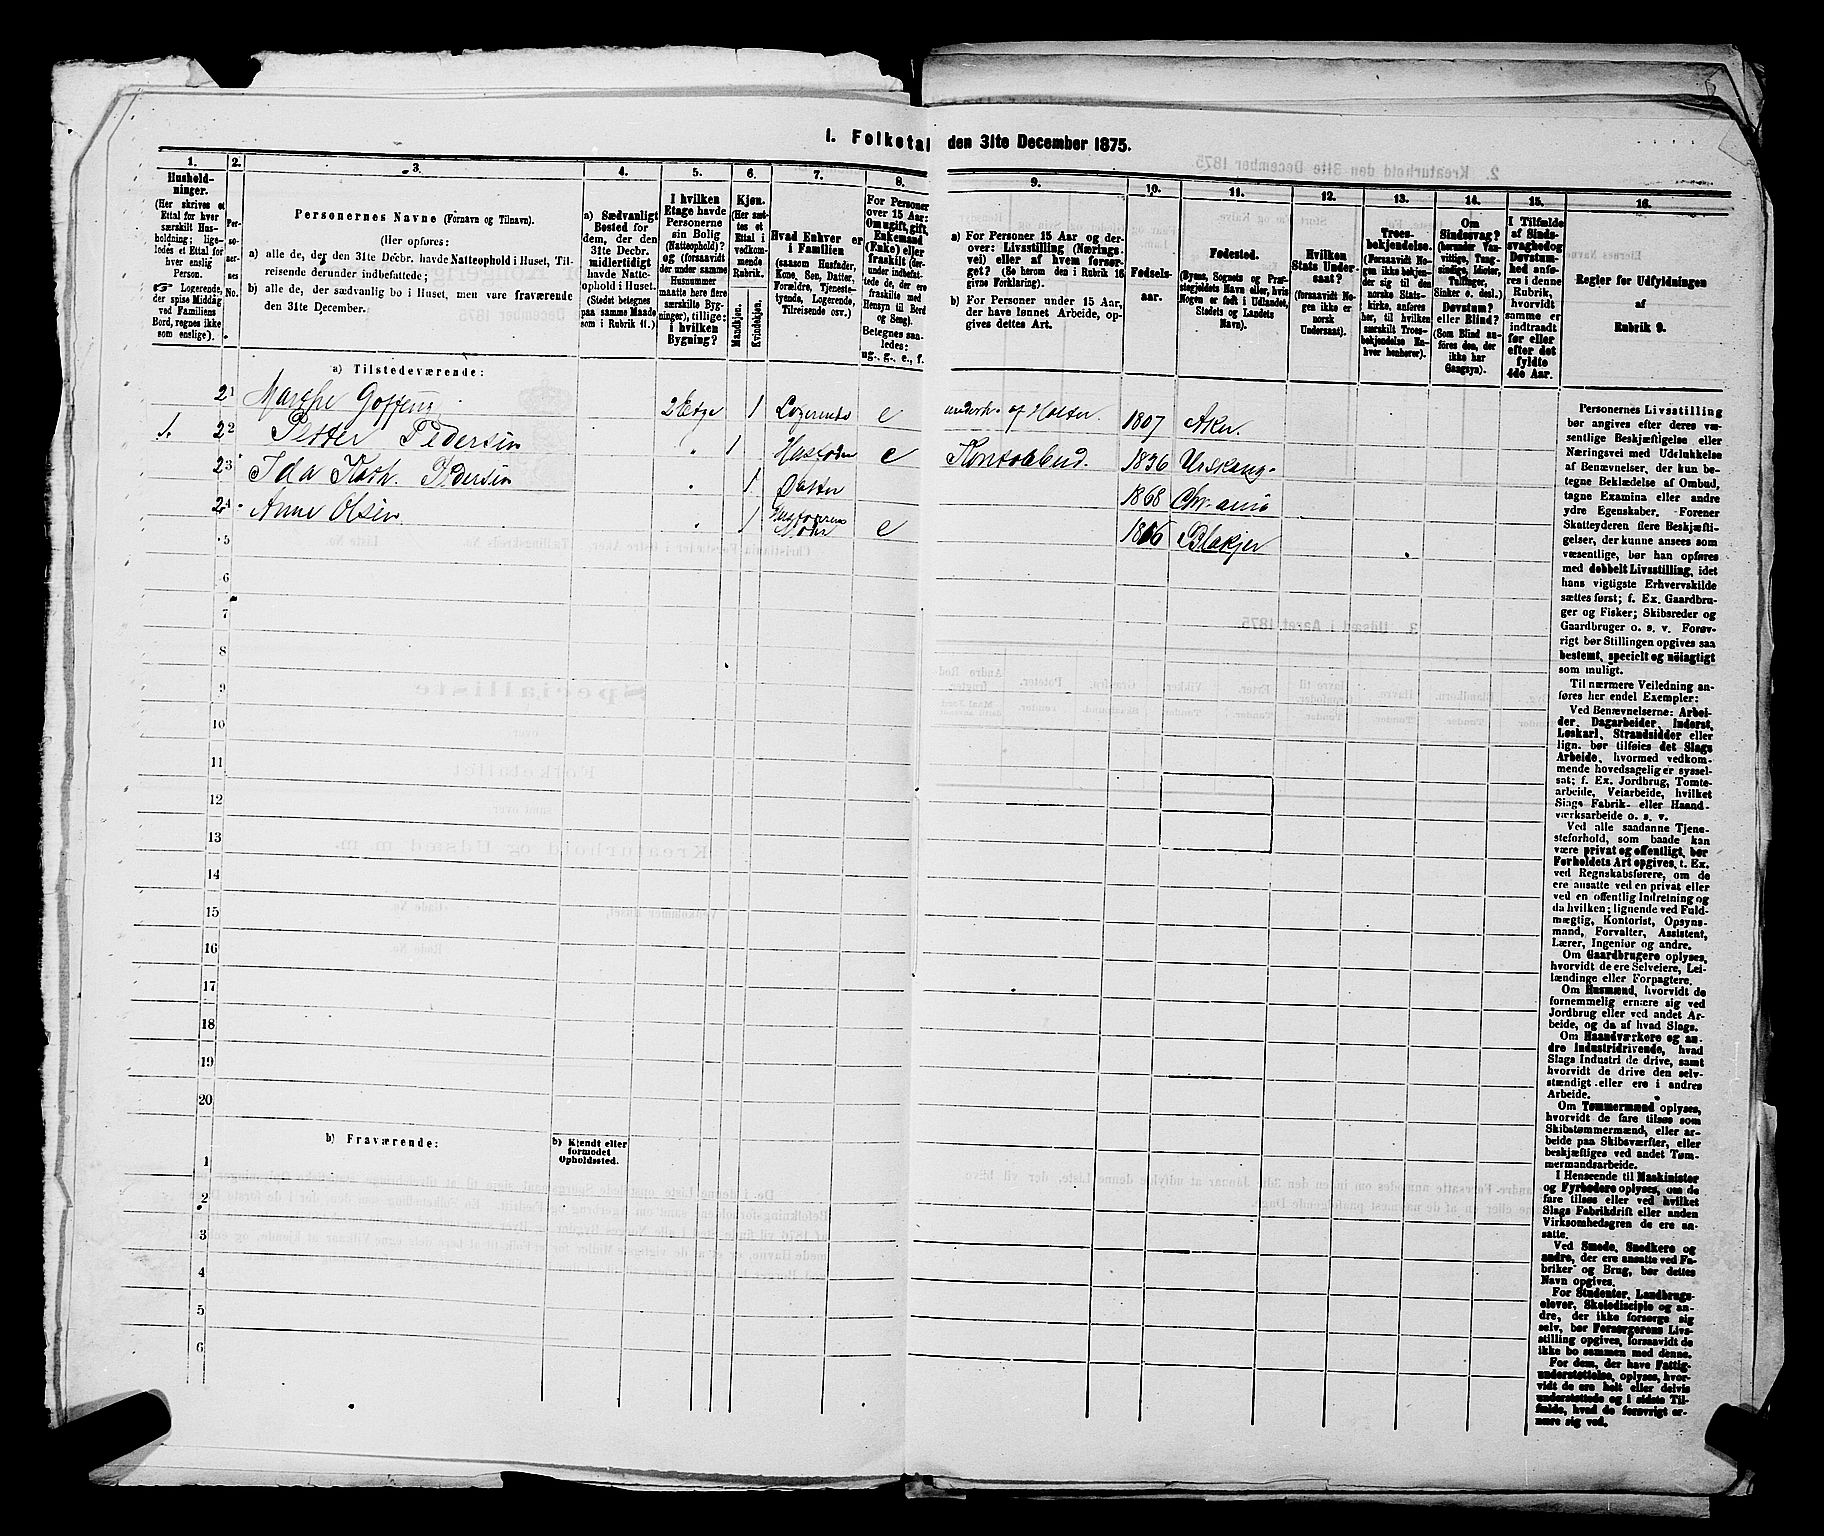 1. Folketal den 31te December 1875.
1.
Hushold-
ninger.
(Her skrives et
Ettal for hver
særskilt Hus-
holdning; lige-
ledes et Ettal for
hver enslig
Person.
☞ Logerende,
der spise Middag
ved Familiens
Bord, regnes ikke
som enslige).
2.
Per-
so-
ner-
nes
No.
3.
Personernes Navne (Fornavn og Tilnavn).
(Her opføres:
a) alle de, der den 31te Decbr. havde Natteophold i Huset, Til-
reisende derunder indbefattede;
b) alle de, der sædvanlig bo i Huset, men vare fraværende
den 31te December.
4.
a) Sædvanligt
Bosted for
dem, der den
31te Decbr.
midlertidigt
havde Natte-
ophold i Huset.
(Stedet betegnes
paa samme Maade
som i Rubrik 11.)
5.
I hvilken
Etage havde
Personerne
sin Bolig
(Natteophold)?
og (forsaavidt
der under samme
Husnummer
maatte høre flere
særskilte Byg-
ninger), tillige:
i hvilken
Bygning?
6.
Kjøn.
(Her sæt-
tes et
Ettal i
vedkom-
mende
Rubrik.
Mandkjøn.
Kvindekjøn.
7.
Hvad Enhver er
i Familien
(saasom Husfader,
Kone, Søn, Datter,
Forældre, Tjeneste-
tyende, Logerende,
Tilreisende osv.)
8.
For Personer
over 15 Aar:
Om ugift, gift,
Enkemand
(Enke) eller
fraskilt (der-
under indbefat-
tede de, der ere
fraskilte med
Hensyn til Bord
og Seng).
Betegnes saa-
ledes:
ug., g., e., f.
9.
a) For Personer 15 Aar og der-
over: Livsstilling (Nærings-
vei) eller af hvem forsør-
get? (Se herom den i Rubrik 16
givne Forklaring).
b) For Personer under 15 Aar,
der have lønnet Arbeide, op-
gives dettes Art.
10.
Fødsels-
aar.
11.
Fødested.
(Byens, Sognets og Præ-
stegjeldets Navn eller, hvis
Nogen er født i Udlandet,
Stedets og Landets
Navn).
12.
Hvilken
Stats Under-
saat?
(forsaavidt No-
gen ikke er
norsk
Undersaat).
13.
Troes-
bekjendelse.
(Forsaavidt No-
gen ikke bekjen-
der sig til den
norske Stats-
kirke, anføres
her, til hvilken
særskilt Troes-
bekjendelse En-
hver henhører).
14.
Om
Sindssvag?
(herunder Van-
vittige, Tung-
sindige, Idioter,
Tullinger,
Sinker o. desl.)
Døvstum?
eller Blind?
(Som Blind an-
føres den, der
ikke har
Gangsyn).
15.
I Tilfælde
af Sinds-
svaghed og
Døvstum-
hed anfø-
res i denne
Rubrik,
hvorvidt
samme er
indtraadt
før eller
efter det
fyldte
4de Aar.
16.
Regler for Udfyldningen
af
Rubrik 9.
a) Tilstedeværende:
21 Marthe 2 Etge 1 Logerende e underh. af Holter. 1807 Aker.
1. 22 Petter Pedersen " 1 Husfader e Kontorbud. 1836 Urskoug
23 Ida Kath. Pedersen " 1 Datter 1868 Chr.ania
24 Anne Olsen " 1 Husfaderens Moder e Blakjer
5
6
7
8
9
10
11
12
13
14
15
16
17
18
19
20
b) Fraværende:
b) Kjendt eller
formodet
Opholdssted.
1
2
3
4
5
6
Personernes Livsstilling
bør angives efter deres væ-
sentlige Beskjæftigelse eller
Næringsvei med Udelukkelse
af Benævnelser, der kun be-
tegne Beklædelse af Ombud,
tagne Examina eller andre
ydre Egenskaber. Forener
Skatteyderen flere Beskjæfti-
gelser, der kunne ansees som
væsentlige, bør han opføres
med dobbelt Livsstilling, idet
hans vigtigste Erhvervskilde
sættes først; f. Ex. Gaardbru-
ger og Fisker; Skibsreder og
Gaardbruger o. s. v. Forøv-
rigt bør Stillingen opgives saa
bestemt, specielt og nöiagtigt
som muligt.
Til nærmere Veiledning an-
føres her endel Exempler:
Ved Benævnelserne: Arbei-
der, Dagarbeider, Inderst,
Løskarl, Strandsidder eller
lign. bør tilføies det Slags
Arbeide, hvormed vedkom-
mende hovedsagelig er syssel-
sat; f. Ex. Jordbrug, Tomte-
arbeide, Veiarbeide, hvilket
Slags Fabrik- eller Haand-
værksarbeide o. s. v.
Ved alle saadanne Tjene-
steforhold, som baade kan
være privat og offentligt, bør
Forholdets Art opgives, t. Ex.
ved Regnskabsførere, om de
ere ansatte ved en privat eller
ved en offentlig Indretning og
da hvilken; lignende ved Fuld-
mægtig, Kontorist, Opsyns-
mand, Forvalter, Assistent,
Lærer, Ingeniør og andre.
Om Gaardbrugere oplyses,
hvorvidt de ere Selveiere, Lei-
lændinge eller Forpagtere.
Om Husmænd, hvorvidt de
fornemmelig ernære sig ved
Jordbrug eller ved andet Ar-
beide, og da af hvad Slags.
Om Haandværkere og an-
dre Industridrivende, hvad
Slags Industri de drive, samt
hvorvidt de drive den selv-
stændigt eller ere i andres
Arbeide.
Om Tømmermænd oplyses,
hvorvidt de fare tilsøs som
Skibstømmermænd, eller ar-
beide paa Skibsværfter, eller
beskjæftiges ved andet Tøm-
mermandsarbeide.
I Henseende til Maskinister
og Fyrbødere oplyses, om de
fare tilsøs eller ved hvilket
Slags Fabrikdrift eller anden
Virksomhedsgren de ere an-
satte.
Ved Smede, Snedkere og
andre, der ere ansatte ved Fa-
briker og Brug, bør dettes
Navn opgives.
For Studenter, Landbrugs-
elever, Skoledisciple og an-
dre, der ikke forsørge sig
selv, bør Forsørgerens Livs-
stilling opgives, forsaavidt de
ikke bo sammen med denne.
For dem, der have Fattig-
understøttelse, oplyses, hvor-
vidt de ere helt eller delvis
understøttede og i sidste Til-
fælde, hvad de forøvrigt er-
nære sig ved.